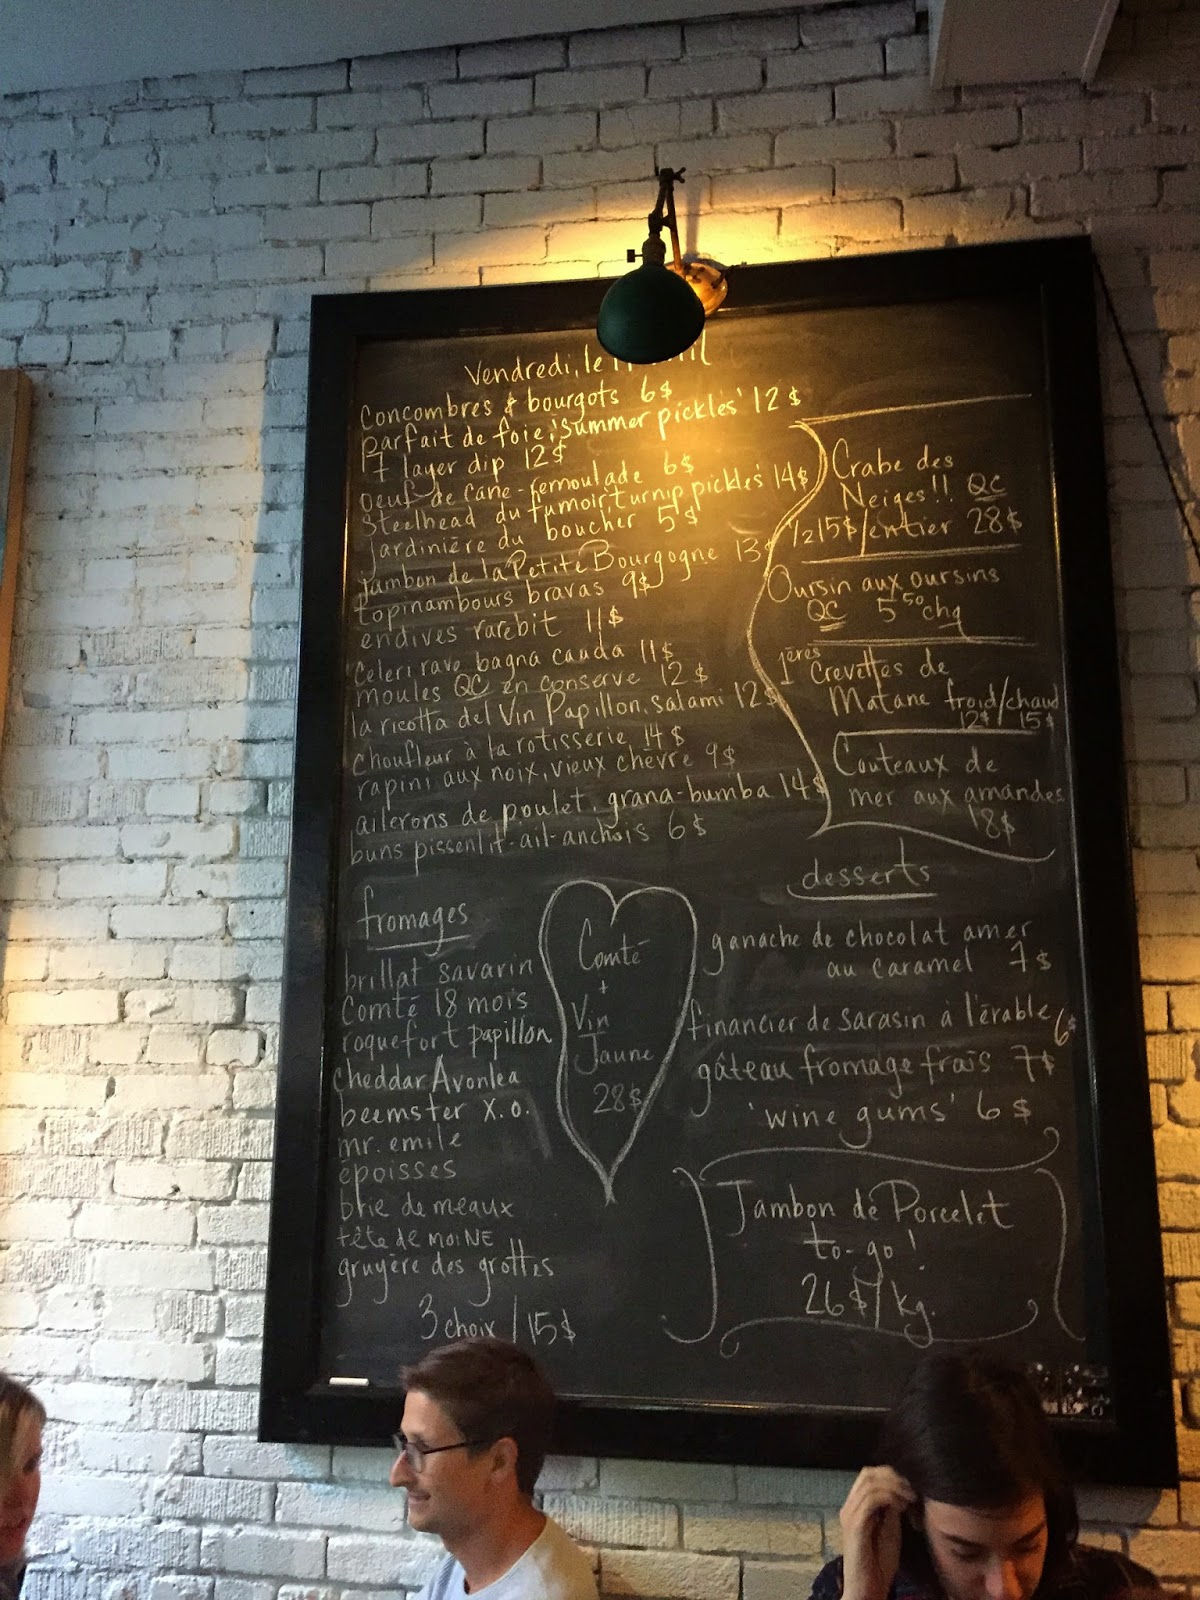 Vendredi, le
Concombres & bourgots 6$
parfait de foie, 'summer pickles' 12$
7 layer dip 12$
oeuf de cane-remoulade 6$
Steelhead du fumoir, 'turnip pickles' 14$
jardinière du boucher 5$
Jambon de la Petite Bourgogne 13$
topinambours bravas 9$
endives rarebit 11$
Celeri rave bagna cauda 11$
moules QC en conserve 12$
la ricotta del Vin Papillon, salami 12$
choufleur à la rotisserie 14$
rapini aux noix, vieux chèvre 9$
ailerons de poulet, grana-bumba 14$
buns pissenlit-ail-anchois 6$
Crabe des
Neiges!! QC
1/2 15$/entier 28$
Oursin aux oursins
QC 5 50 chq
1ères Crevettes de
Matane froid/chaud
12$ 15$
Couteaux de
mer aux amandes
18$
fromages
brillat savarin
Comté 18 mois
roquefort papillon
cheddar Avonlea
beemster x.o.
mr. emile
époisses
brie de meaux
tête de moiNE
gruyère des grottes
3 choix / 15$
Comté
+
Vin
Jaune
28$
desserts
ganache de chocolat amer
au caramel 7$
financier de sarasin à l'érable 6$
gâteau fromage frais 7$
'wine gums' 6$
Jambon de Porcelet
to-go!
26$/kg.